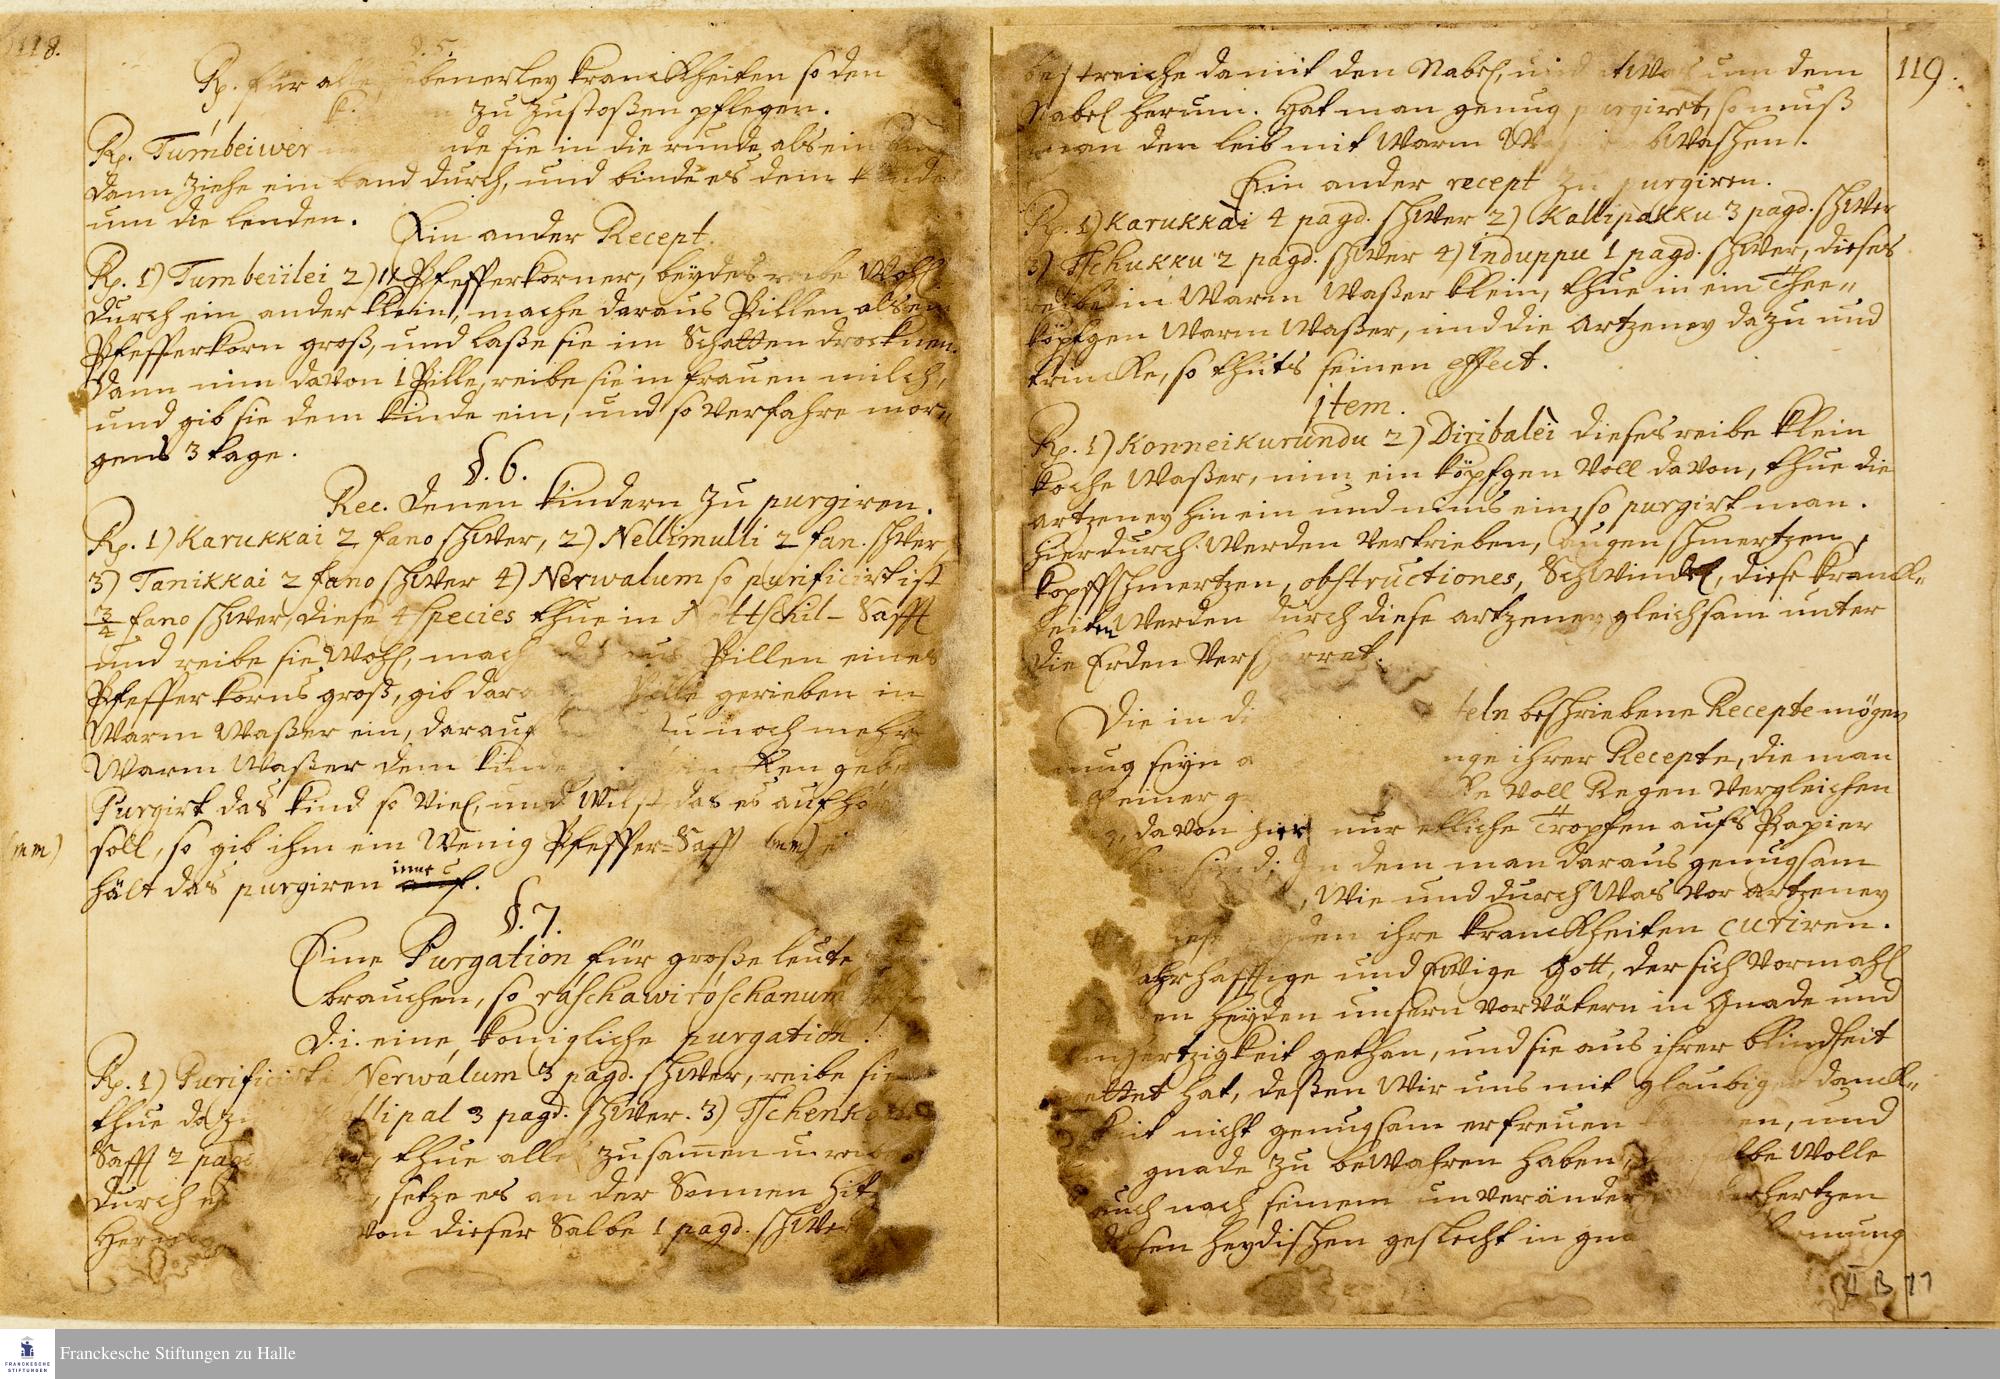 118.
Rp. für alle benerley kranckheiten so den
zu zustoßen pflegen.
Rp. Tumbeiwer de sie in die runde als ein
dann ziehe ein band durch, und binde es dem kinde
um die lenden.
Ein ander Recept.
Rp. 1) Tumbeiilei 2) 11 Pfefferkorner, beydes reibe wohl
durch ein ander klein, mache daraus Pillen als ein
Pfefferkorn groß, und laße sie im Schatten drocknen.
dann nim davon 1 Pille, reibe sie in frauen milch,
und gib sie dem kinde ein, und so verfahre mor-
gens 3 tage.
§. 6.
Rec. denen kindern zu purgiren.
Rp. 1) Karukkai 2 fano schwer, 2) Nellimulli 2 fan. schwer,
3) Tanikkai 2 fano schwer 4) Nerwalum so purificirt ist
3/4 fano schwer, diese 4 species thue in schil-Safft
und reibe sie wohl, mach aus Pillen eines
Pfeffer korns groß, gib Pille gerieben in
warm waßer ein, darauf noch mehr
warm waßer dem kinde geben
Purgirt das kind so viel, und wilst, das es aufhören
(mm) soll, so gib ihm ein wenig Pfeffer-Safft (mm)
hält das purgiren inne auf.
§. 7.
Eine Purgation für große leute
brauchen, so raschawiroschanum
d. i. eine königliche purgation.
Rp. 1) Purificirte Nerwalum 3 pagd. schwer, reibe sie
thue dazu llipal 3 pagd. schwer. 3) Tschenko
Safft 2 pagd thue alles zusamen u. reibe
durch setze es an der Sonnen hitz
von dieser Salbe 1 pagd. schwer
119.
bestreiche damit den Nabel, und etwas um dem
Nabel herum. Hat man genug purgiret, so muß
man den leib mit warm waschen.
Ein ander recept zu purgiren.
Rp. 1) Karukkai 4 pagd. schwer 2) Kallipakku 3 pagd. schwer
3) Tschukku 2 pagd. schwer 4) Induppu 1 pagd. schwer, dieses
reibe in warm waßer klein, thue in ein Thee-
köpfgen warm waßer, und die artzeney dazu und
trincke, so thuts seinen effect.
Item.
Rp. 1) Konneikurundu 2) Diribalei dieses reibe klein
koche waßer, nim ein köpfgen voll davon, thue die
artzeney hinein und nims ein, so purgirt man.
hierdurch werden vertrieben, augen schmertzen,
kopffschmertzen, obstructiones, Schwindel, diese kranck-
heiten werden durch diese artzeney gleichsam unter
die Erden verscharret.
Die in di teln beschriebene Recepte mögen
nug seyn nge ihrer Recepte, die man
einer voll Regen vergleichen
davon hier nur etliche Tropfen aufs Papier
sind. In dem man daraus genugsam
wie und durch was vor artzeney
ihre kranckheiten curiren.
ahrhafftige und Ewige Gott, der sich vormahl
en heyden unsern vorvätern in Gnade und
mhertzigkeit gethan, und sie aus ihrer blindheit
ettet hat, deßen wir uns mit glaubiger danck-
keit nicht genugsam erfreuen en, und
gnade zu bewahren haben, selbe wolle
auch nach seinem unveränder hertzen
diesen heydischen geslecht in
II B 11
Franckesche Stiftungen zu Halle
FRANCKESCHE
STIFTUNGEN